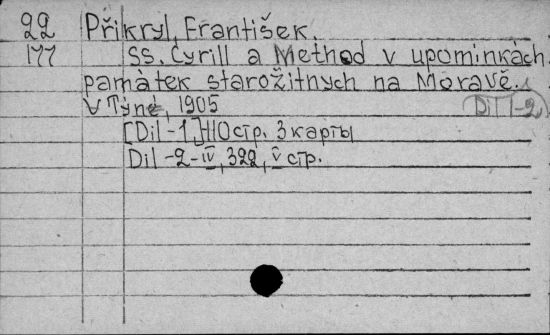 22 Přikryl, František.
177 SS. Cyrill a Method v upomínkách
památek starožitnych na Moravě.
V Týně, 1905 Díl 1-2
[Díl -1.] 110 стр. 3 карты
Díl -2-IV, 322, V стр.